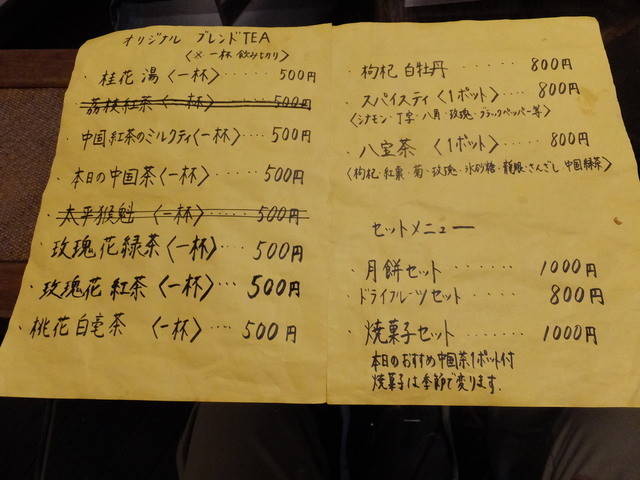 オリジナル ブレンドTEA
〈※一杯飲み切り〉
・桂花湯〈一杯〉‥‥‥500円
・茘枝紅茶〈一杯〉‥‥500円
・中国紅茶のミルクティ〈一杯〉‥‥500円
・本日の中国茶〈一杯〉‥‥500円
・太平猴魁〈一杯〉‥‥500円
・玫瑰花緑茶〈一杯〉‥‥500円
・玫瑰花紅茶〈一杯〉‥‥500円
・桃花白毫茶〈一杯〉‥‥500円
・枸杞白牡丹‥‥‥800円
・スパイスティ〈1ポット〉‥‥800円
〈シナモン・丁字・八角・玫瑰・ブラックペッパー等〉
・八宝茶〈1ポット〉‥‥‥800円
〈枸杞・紅棗・菊・玫瑰・氷砂糖・龍眼・さんざし 中国緑茶〉
セットメニュー
・月餅セット‥‥‥1000円
・ドライフルーツセット‥‥‥800円
・焼菓子セット‥‥‥1000円
本日のおすすめ中国茶1ポット付
焼菓子は季節で変ります.